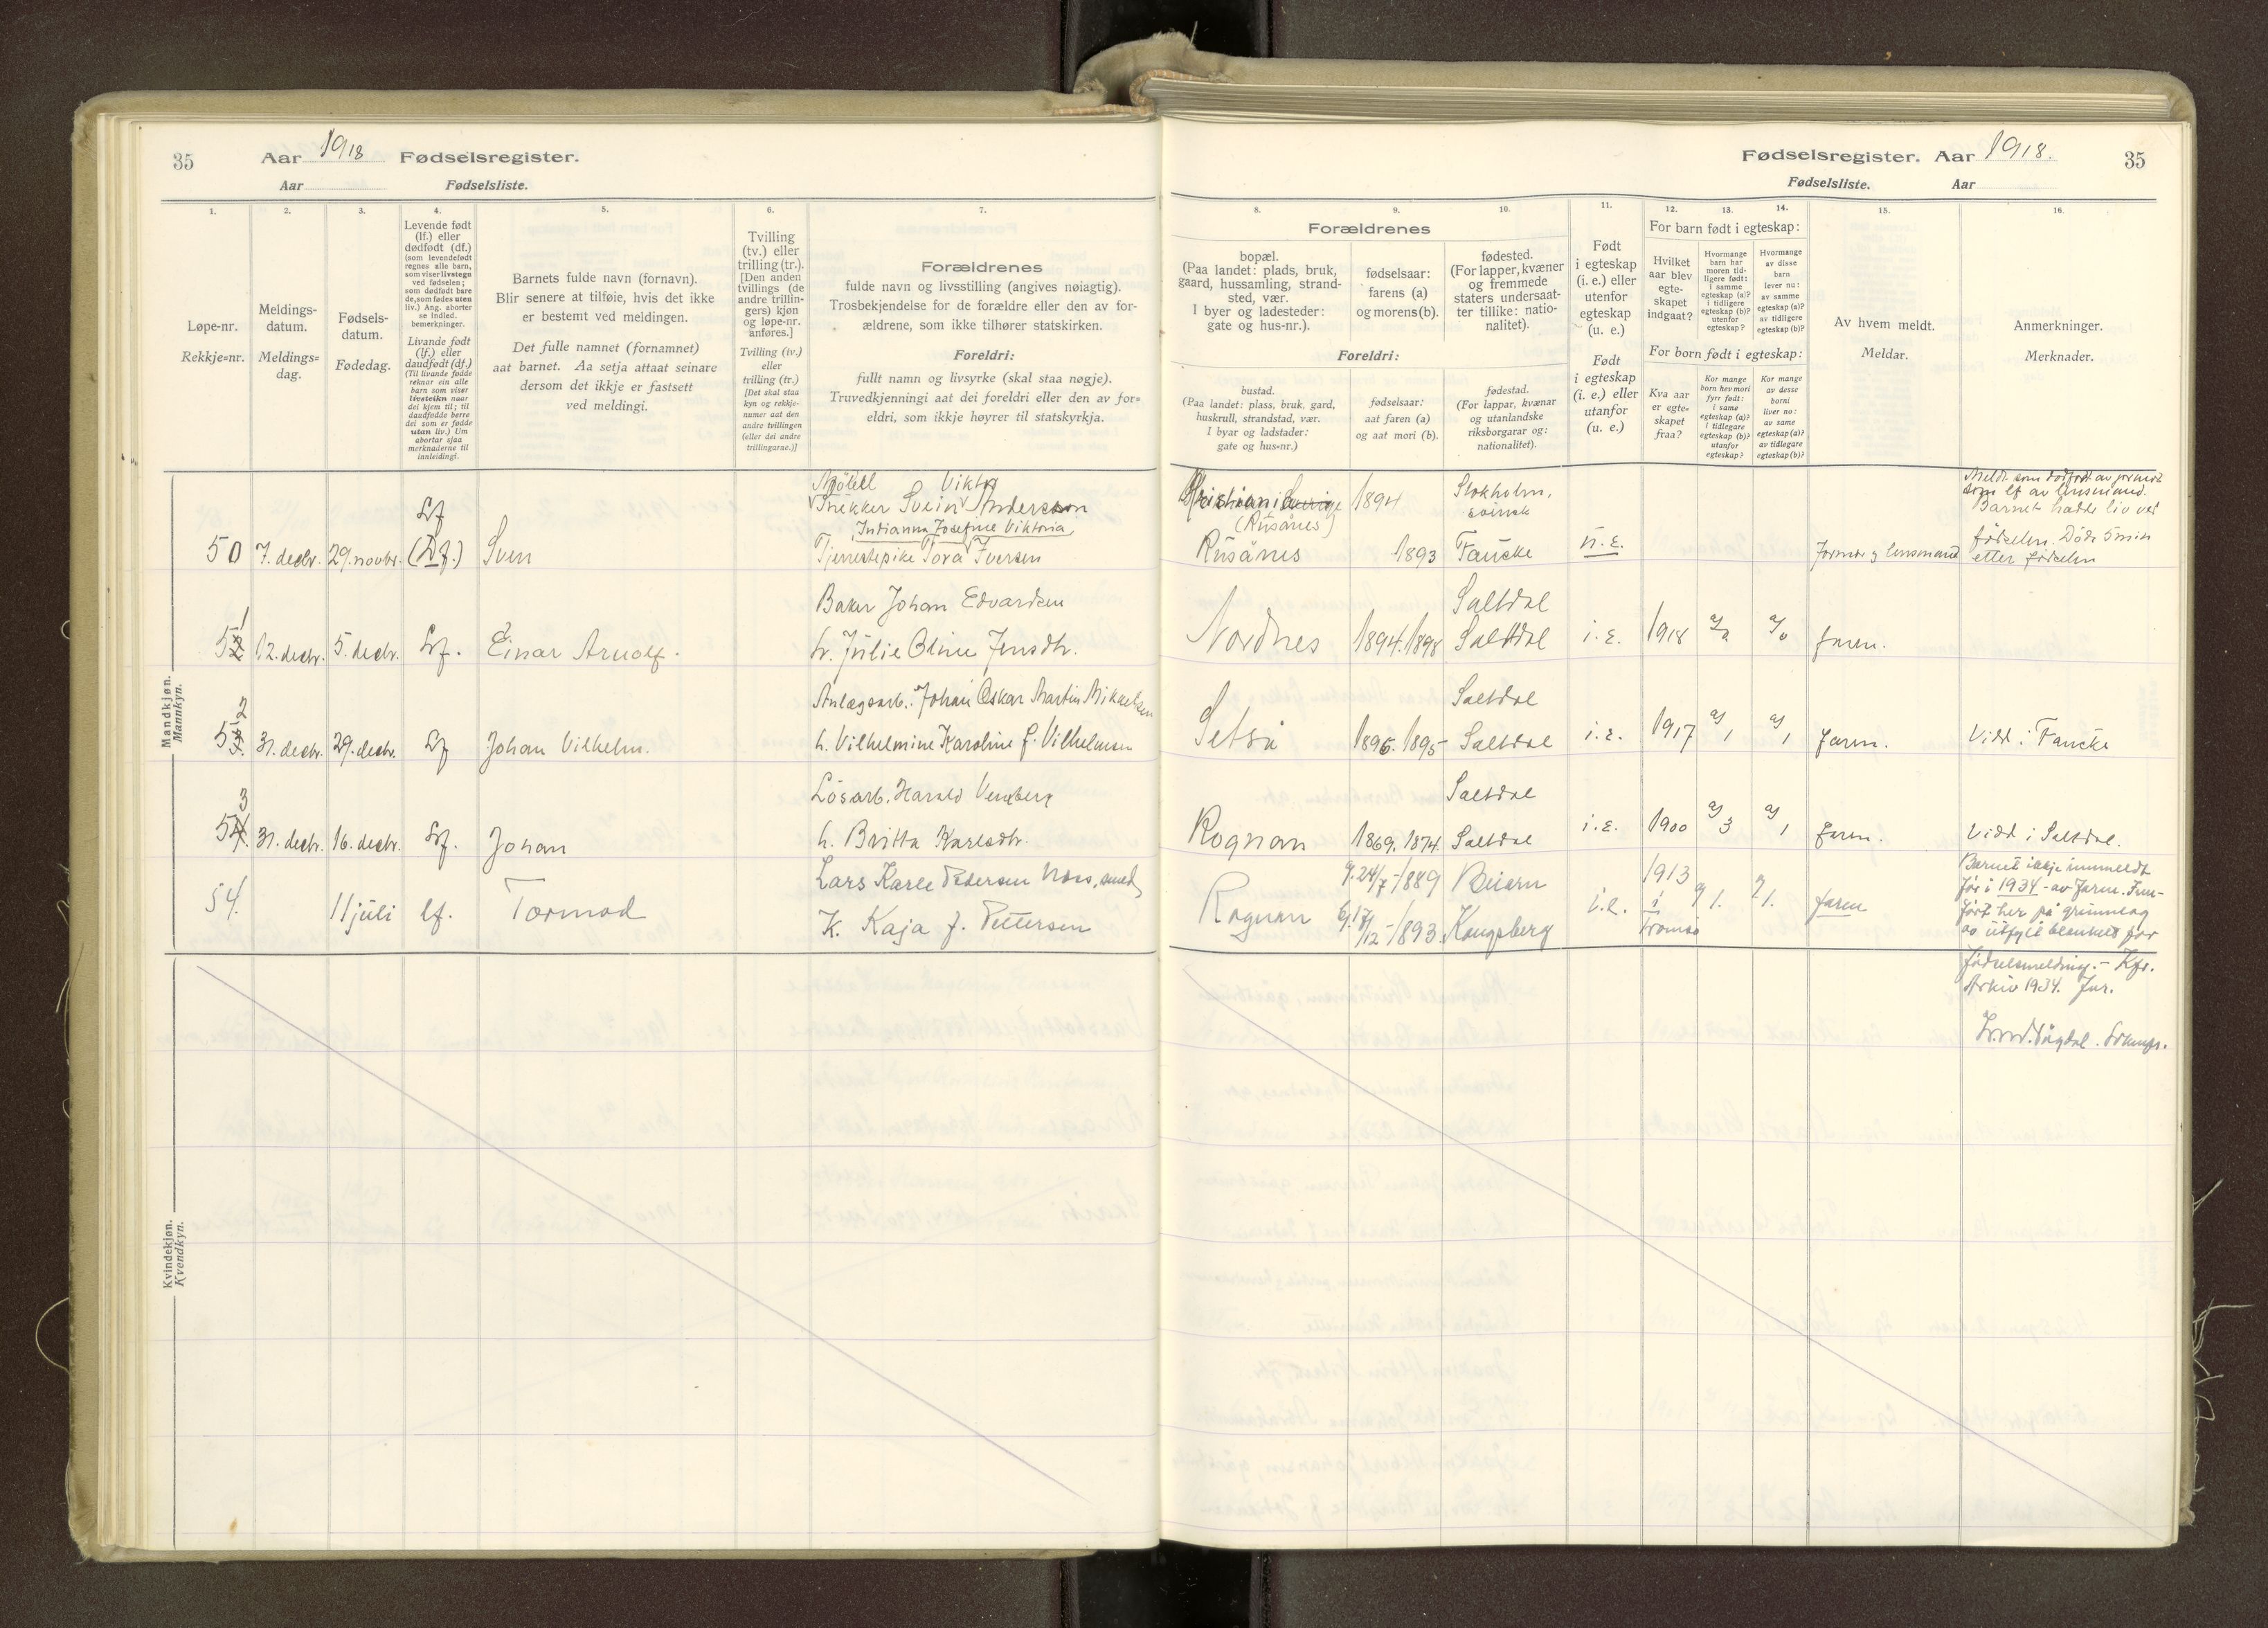 35
Aar 1918 Fødselsregister.
Aar Fødselsliste.
1.
2.
3.
4.
5.
6.
7.
Løpe-nr.
Rekkje=nr.
Meldings-
datum.
Meldings=
dag.
Fødsels-
datum.
Fødedag.
Levende født
(lf.) eller
dødfødt (df.)
(som levendefødt
regnes alle barn,
som viser livstegn
ved fødselen;
som dødfødt bare
de, som fødes uten
liv.) Ang. aborter
se indled.
bemerkninger.
Livande født
(lf.) eller
daudfødt (df.)
(Til livande fødde
reknar ein alle
barn som viser
livsteikn naar
dei kjem til; til
daudfødde berre
dei som er fødde
utan liv.) Um
abortar sjaa
merknaderne til
innleidingi.
Barnets fulde navn (fornavn).
Blir senere at tilføie, hvis det ikke
er bestemt ved meldingen.
Det fulle namnet (fornamnet)
aat barnet. Aa setja attaat seinare
dersom det ikkje er fastsett
ved meldingi.
Tvilling
(tv.) eller
trilling (tr.).
[Den anden
tvillings (de
andre trillin-
gers) kjøn
og løpe-nr.
anføres.]
Tvilling (tv.)
eller
trilling (tr.)
[Det skal staa
kyn og rekkje-
numer aat den
andre tvillingen
(eller dei andre
trillingarne.)]
Forældrenes
fulde navn og livsstilling (angives nøiagtig).
Trosbekjendelse for de forældre eller den av for-
ældrene, som ikke tilhører statskirken.
Foreldri:
fullt namn og livsyrke (skal staa nøgje).
Truvedkjenningi aat dei foreldri eller den av for=
eldri, som ikkje høyrer til statskyrkja.
Mandkjøn.
Mannkyn.
Viktor
Snekker Svein Anderson
Indianna Josefine Viktoria
50 7. decbr. 29. novbr. Lf (Df.) Sven Tjenestepike Tora Iversen
Baker Johan Edvardsen
51 12. decbr. 5. decbr. Lf. Einar Arnolf. h. Julie Oline Jensdtr.
Anlægsarb. Johan Oskar Martin Mikaelsen
52 31. decbr. 29. decbr. Lf Johan Vilhelm. h. Vilhelmine Karoline f. Vilhelmsen
Løsarb. Harald Venberg
53 31. decbr. 16. decbr. Lf. Johan h. Britta Karlsdtr.
Lars Karle Pedersen Moss, smed
54. 11 juli lf. Tormod K. Kaja f. Pettersen
Kvindekjøn.
Kvendkyn.
Fødselsregister. Aar 1918. 35
Fødselsliste. Aar
8.
9.
10.
11.
12.
13.
14.
15.
16.
Forældrenes
bopæl.
(Paa landet: plads, bruk,
gaard, hussamling, strand-
sted, vær.
I byer og ladesteder:
gate og hus-nr.).
fødselsaar:
farens (a)
og morens (b).
fødested.
(For lapper, kvæner
og fremmede
staters undersaat-
ter tillike: natio-
nalitet).
Foreldri:
bustad.
(Paa landet: plass, bruk, gard,
huskrull, strandstad, vær.
I byar og ladstader:
gate og hus=nr.)
fødselsaar:
aat faren (a)
og aat mori (b).
fødestad.
(For lappar, kvænar
og utanlandske
riksborgarar og:
nationalitet).
Født
i egteskap
(i. e.) eller
utenfor
egteskap
(u. e.)
Født
i egteskap
(i. e.) eller
utanfor
(u. e.)
For barn født i egteskap:
Hvilket
aar blev
egte-
skapet
indgaat?
Hvormange
barn har
moren tid-
ligere født:
i samme
egteskap (a)?
i tidligere
egteskap (b)?
utenfor
egteskap?
Hvormange
av disse
barn
lever nu:
av samme
egteskap (a)?
av tidligere
egteskap (b)?
For born født i egteskap:
Kva aar
er egte=
skapet
fraa?
Kor mange
born hev mori
fyrr født:
i same
egteskap (a)?
i tidlegare
egteskap (b)?
utanfor
egteskap?
Kor mange
av desse
borni
liver no:
av same
egteskap (a)?
av tidlegare
egteskap (b)?
Av hvem meldt.
Meldar.
Anmerkninger.
Merknader.
Kristiania Sverige 1894 Stokholm, svensk
(Rusånes)
Rusånes 1893 Fauske u. e. Jormor og lensmand
Meldt som dødfødt av jormor
som lf av lensmand.
Barnet hadde liv ved
fødselen. Døde 5 min
etter fødselen
Saltdal
Nordnes 1894. 1898 Saltdal i. e. 1918 faren.
Saltdal
Setså 1896. 1895 Saltdal i. e. 1917 a/1 a/1 faren. Vidd i Fauske
Saltdal
Rognan 1869. 1874. Saltdal i. e. 1900 a/3 a/1 faren. Vidd i Saltdal.
g. 24/7-1889 Beiarn 1913
Rognan 17/12-1893. Kongsberg i.e. i Tromsø faren
Barnet ikkje innmeldt
før i 1934 - av faren. Inn-
ført her på grunnlag
av utfylt blankett for
fødselsmelding. - Kfr.
Arkiv 1934.